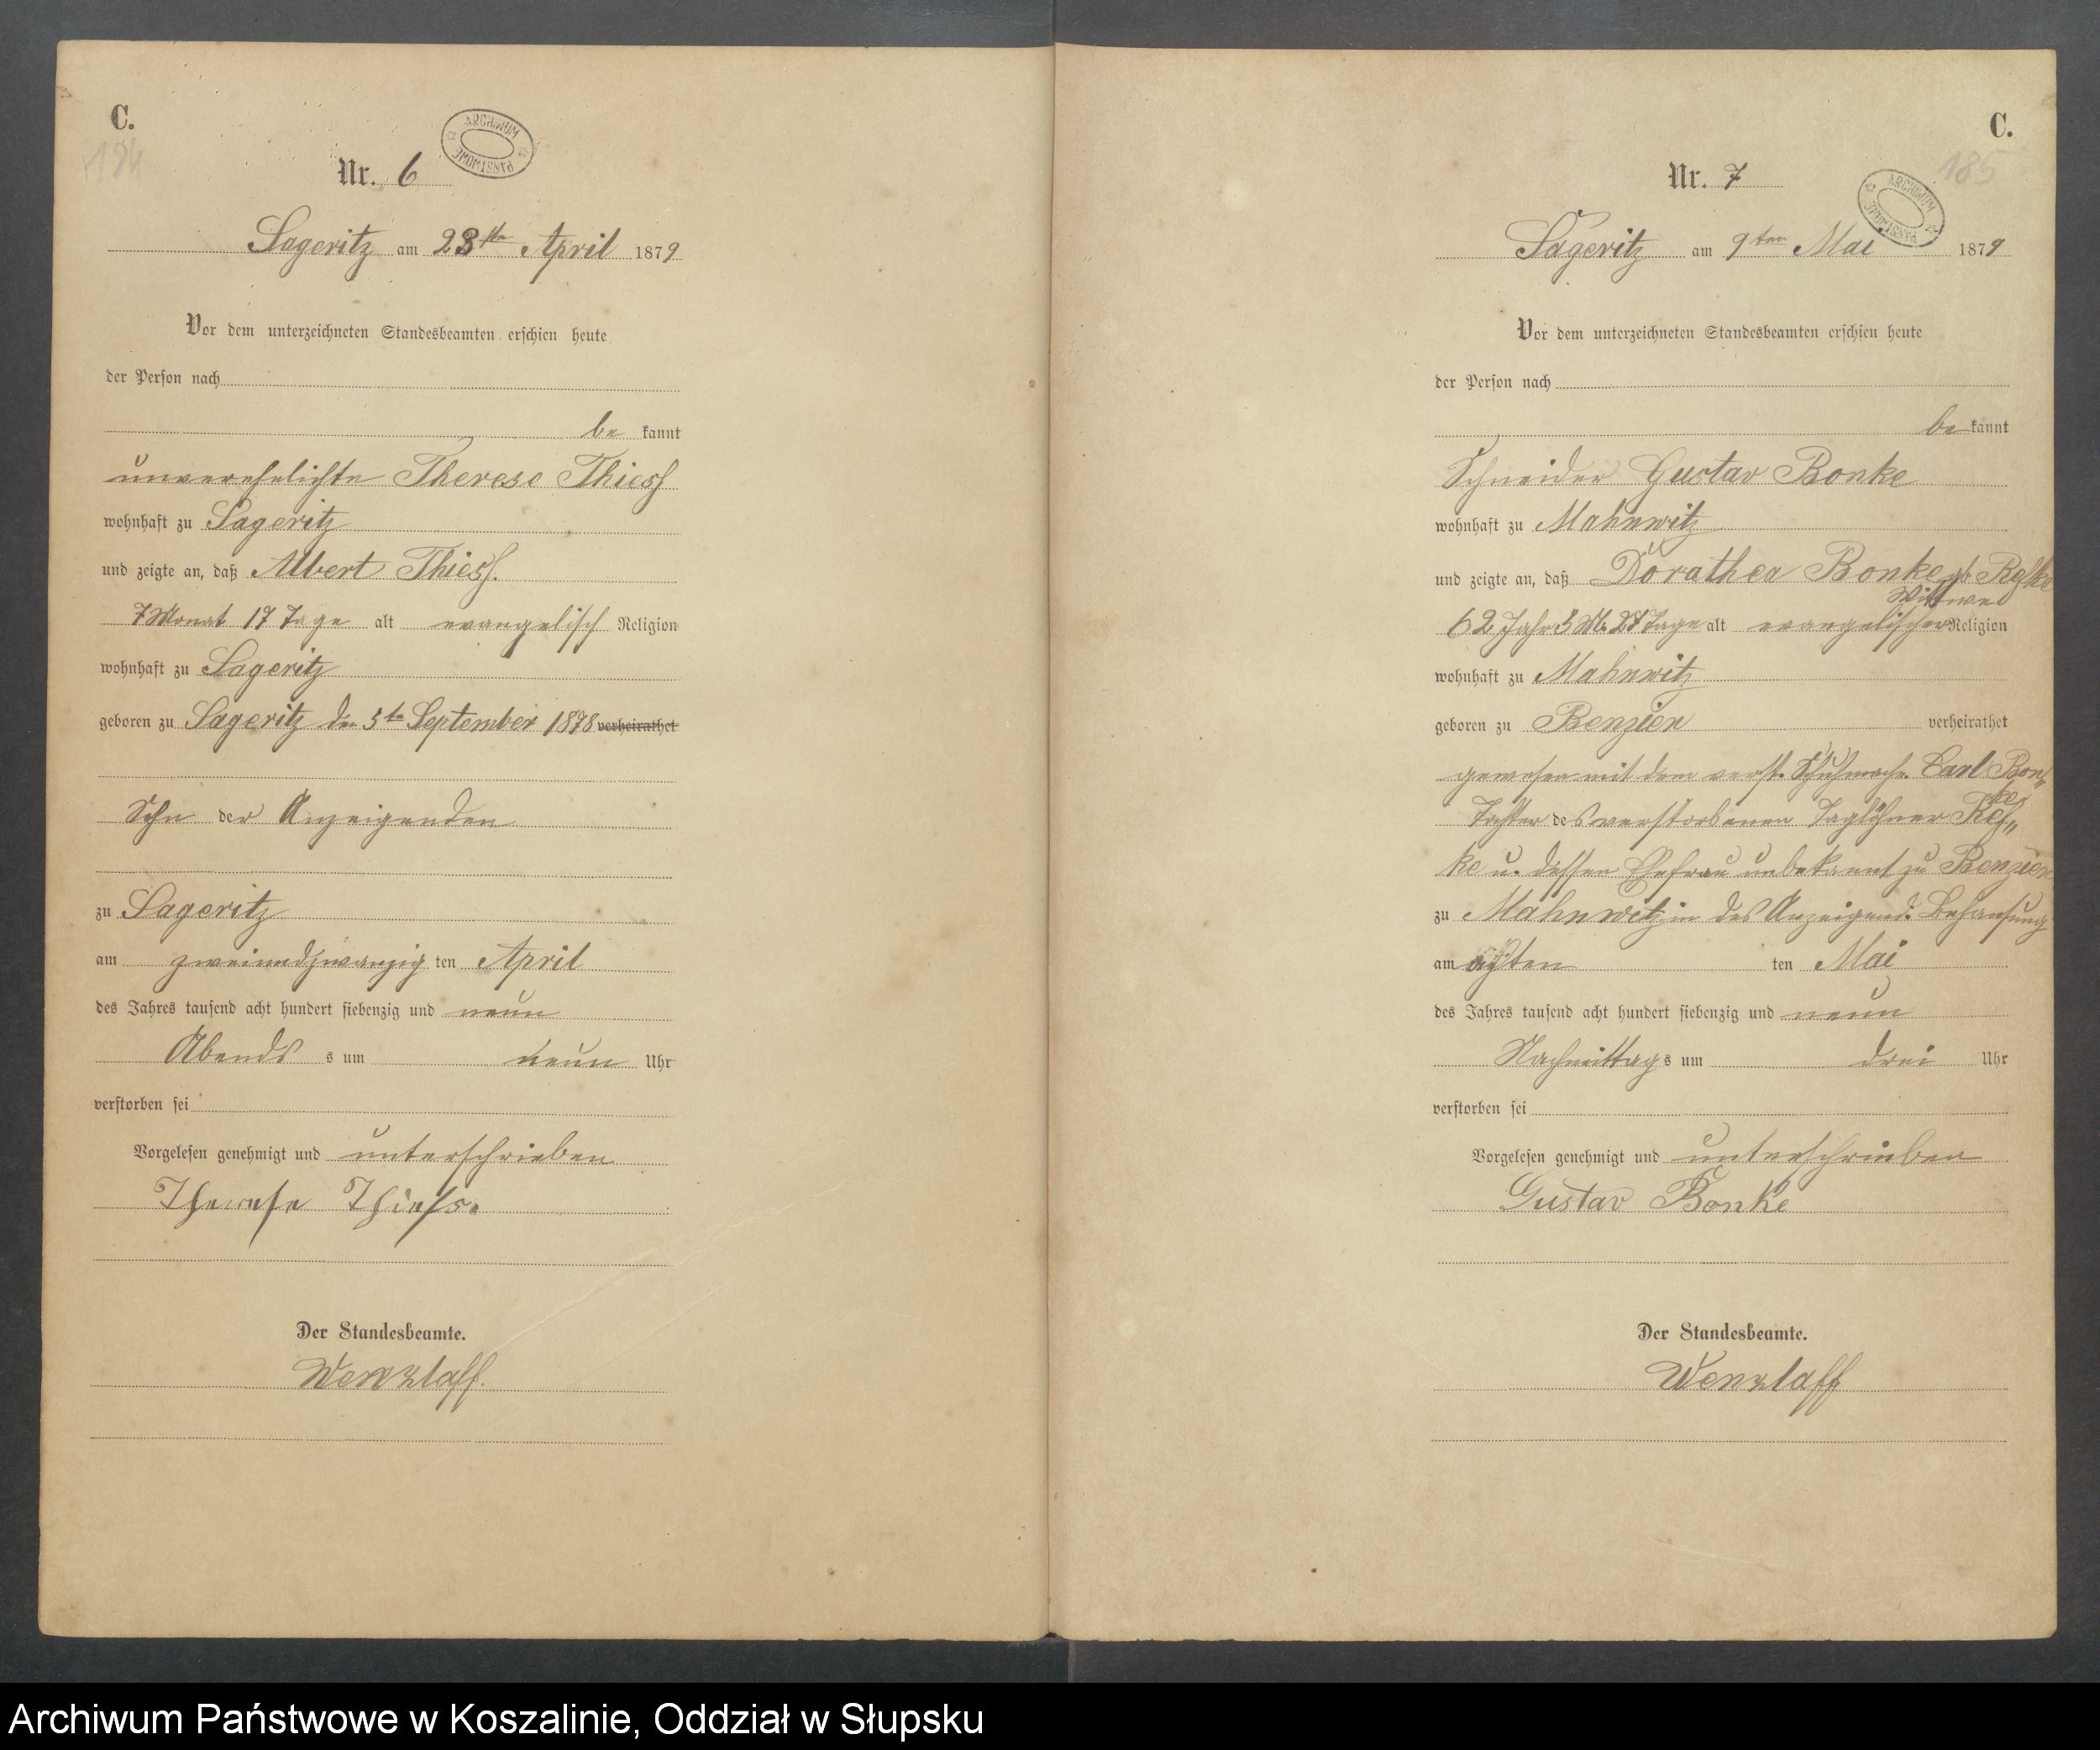 C.
184
Nr. 6
ARCHIWUM PAŃSTWOWE
Sageritz am 23ten April 1879
Vor dem unterzeichneten Standesbeamten erschien heute
der Person nach
be kannt
unverehelichte Therese Thiess
wohnhaft zu Sageritz
und zeigte an, daß Albert Thiess.
7 Monat 17 Tage alt evangelisch Religion
wohnhaft zu Sageritz
geboren zu Sageritz den 5ten September 1878 verheirathet
Sohn der Anzeigenden
zu Sageritz
am zweiundzwanzig ten April
des Jahres tausend acht hundert siebenzig und neun
Abends s um neun Uhr
verstorben sei
Vorgelesen genehmigt und unterschrieben
Therese Thiess.
Der Standesbeamte.
Wenzlaff.
C.
185
Nr. 7
ARCHIWUM PAŃSTWOWE
Sageritz am 9ten Mai 1879
Vor dem unterzeichneten Standesbeamten erschien heute
der Person nach
be kannt
Schneider Gustav Bonke
wohnhaft zu Mahnwitz
und zeigte an, daß Dorathea Bonke geb Refke
Wittwe
62 Jahr 3 Mt. 27 Tage alt evangelischer Religion
wohnhaft zu Mahnwitz
geboren zu Benzien verheirathet
gewesen mit dem verst. Schuhmach. Carl Bon„
ke
Tochter des verstorbenen Taglöhner Ref„
ke u. dessen Ehefrau unbekannt zu Benzien
zu Mahnwitz in des Anzeigend. Behausung
am achten ten Mai
des Jahres tausend acht hundert siebenzig und neun
Nachmittag s um drei Uhr
verstorben sei
Vorgelesen genehmigt und unterschrieben
Gustav Bonke
Der Standesbeamte.
Wenzlaff
Archiwum Państwowe w Koszalinie, Oddział w Słupsku